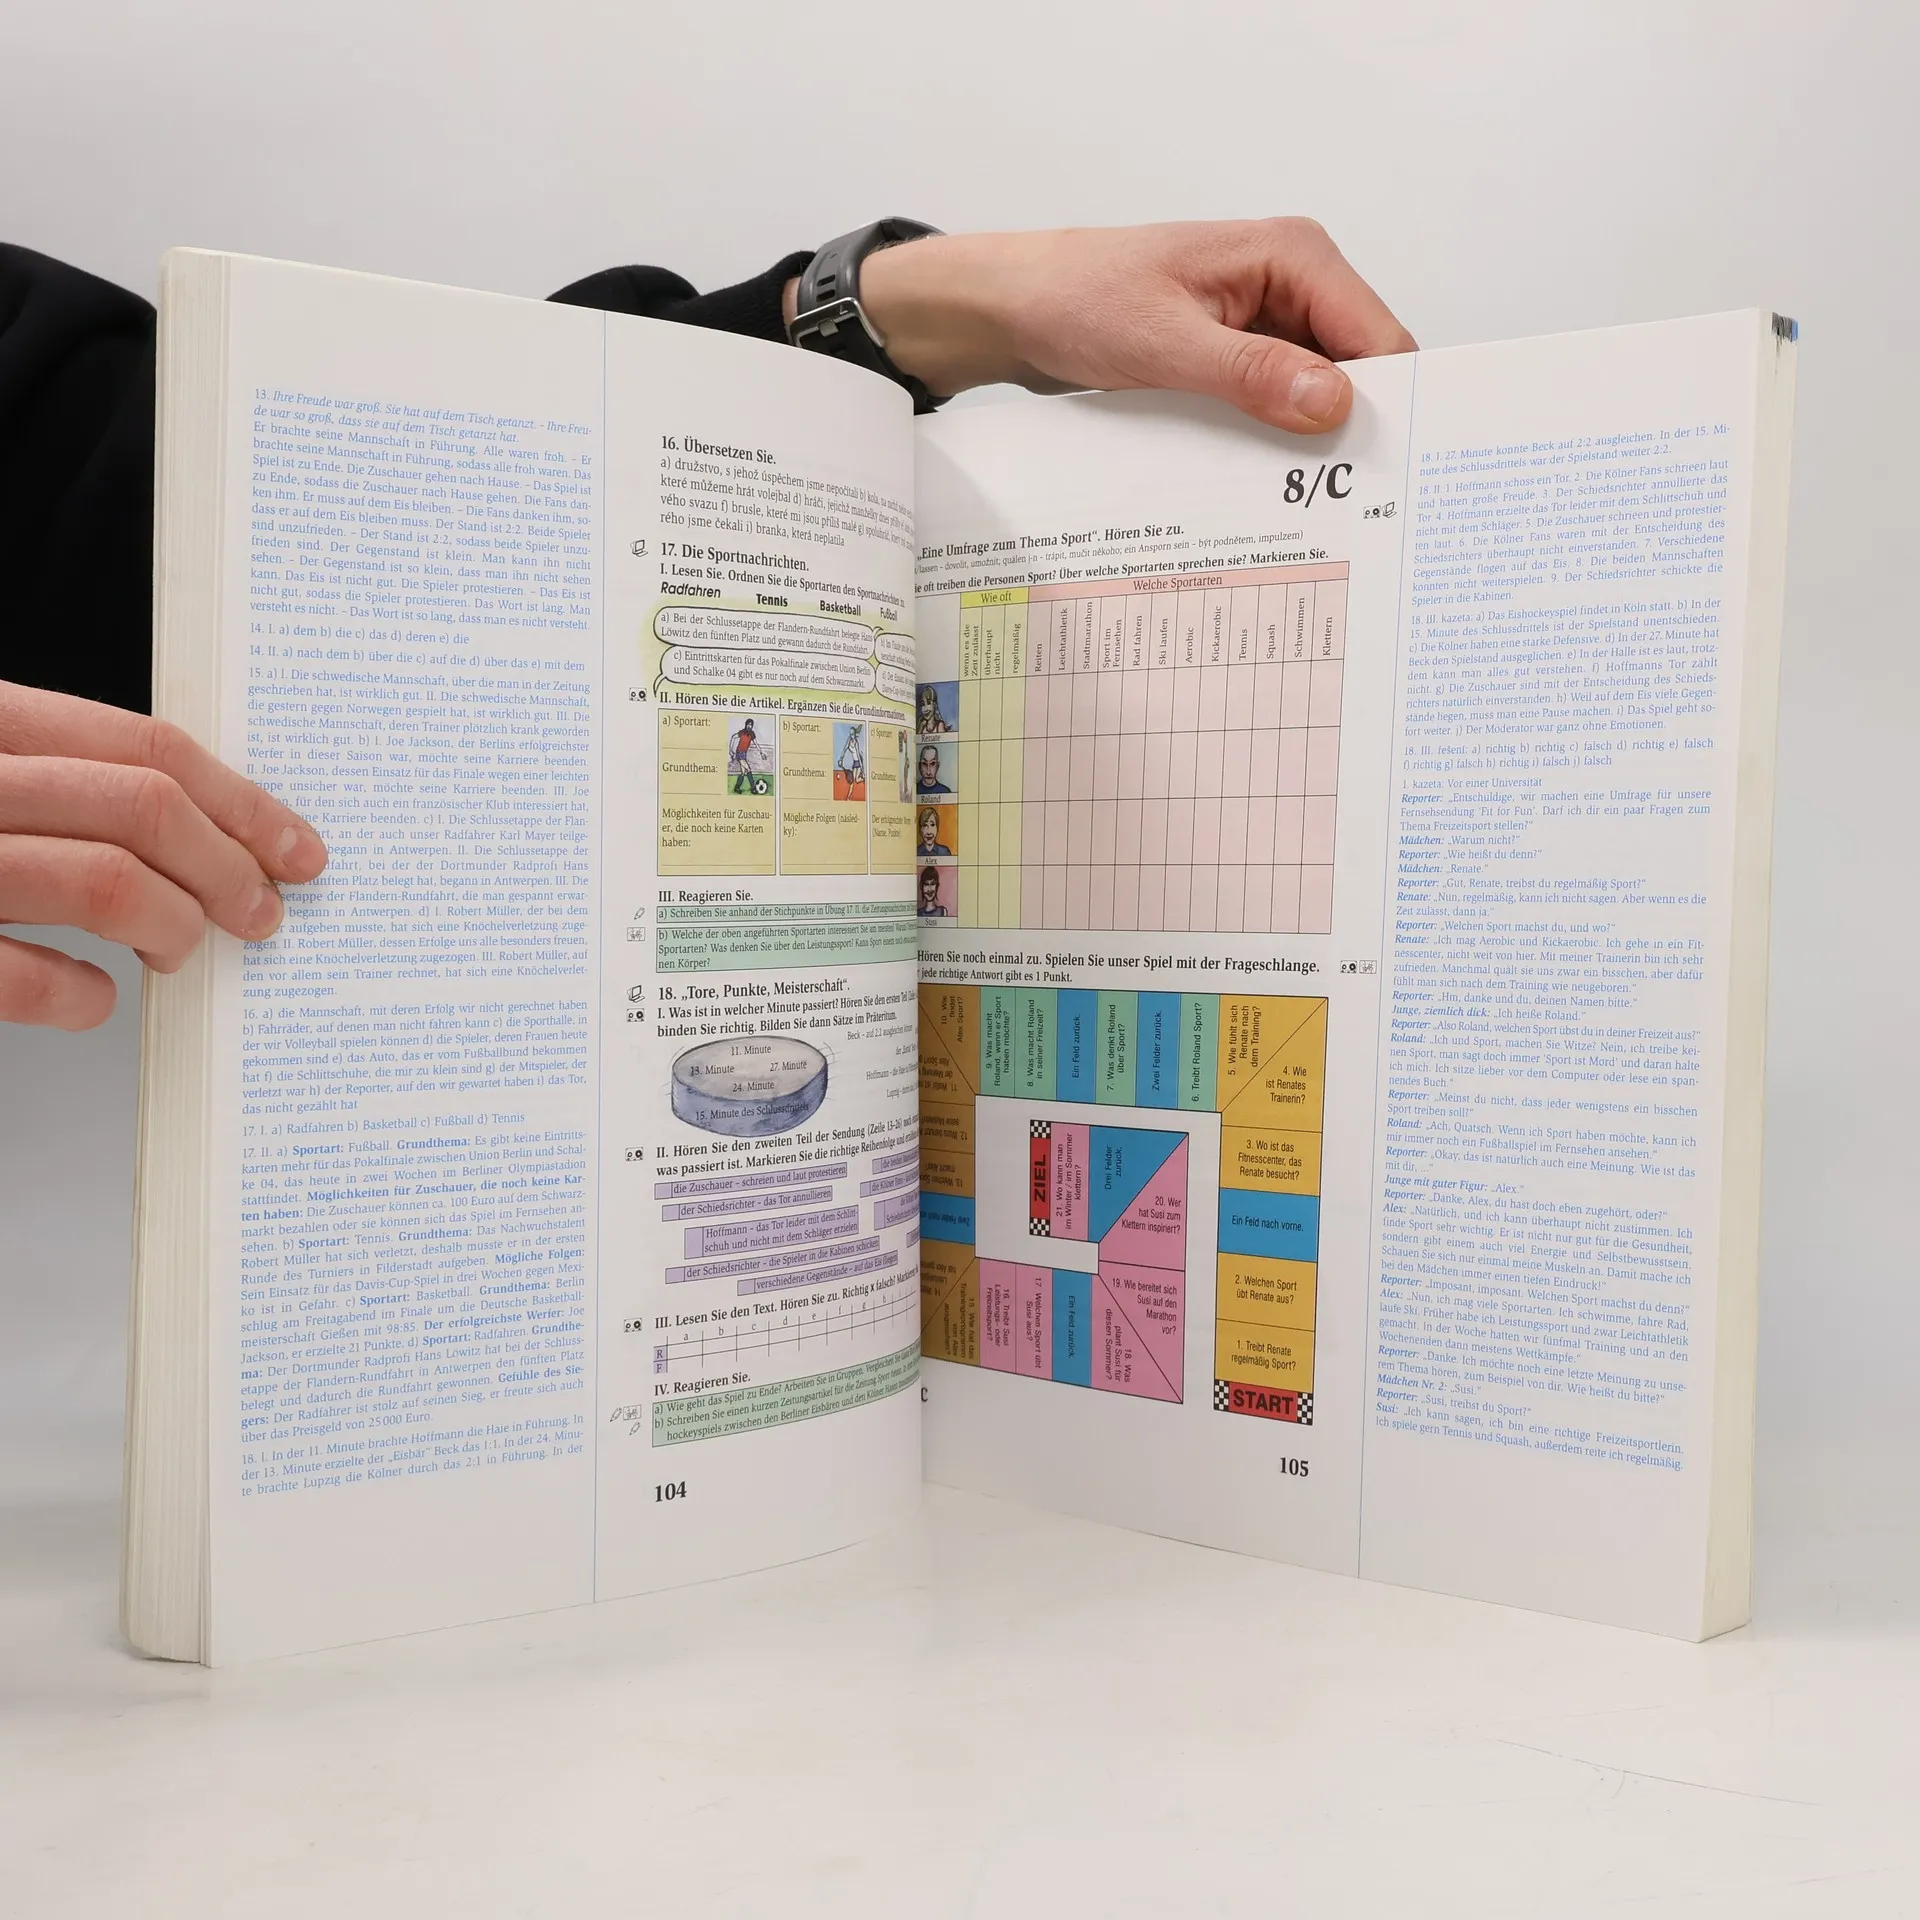 13. Ihre Freude war groß. Sie hat auf dem Tisch getanzt. – Ihre Freu-
de war so groß, dass sie auf dem Tisch getanzt hat.
Er brachte seine Mannschaft in Führung. Alle waren froh. – Er
brachte seine Mannschaft in Führung, sodass alle froh waren. Das
Spiel ist zu Ende. Die Zuschauer gehen nach Hause. – Das Spiel ist
zu Ende, sodass die Zuschauer nach Hause gehen. Die Fans dan-
ken ihm. Er muss auf dem Eis bleiben. – Die Fans danken ihm, so-
dass er auf dem Eis bleiben muss. Der Stand ist 2:2. Beide Spieler
sind unzufrieden. – Der Stand ist 2:2, sodass beide Spieler unzu-
frieden sind. Der Gegenstand ist klein. Man kann ihn nicht
sehen. – Der Gegenstand ist so klein, dass man ihn nicht sehen
kann. Das Eis ist nicht gut. Die Spieler protestieren. – Das Eis ist
nicht gut, sodass die Spieler protestieren. Das Wort ist lang. Man
versteht es nicht. – Das Wort ist so lang, dass man es nicht versteht.
14. I. a) dem b) die c) das d) deren e) die
14. II. a) nach dem b) über die c) auf die d) über das e) mit dem
15. a) I. Die schwedische Mannschaft, über die man in der Zeitung
geschrieben hat, ist wirklich gut. II. Die schwedische Mannschaft,
die gestern gegen Norwegen gespielt hat, ist wirklich gut. III. Die
schwedische Mannschaft, deren Trainer plötzlich krank geworden
ist, ist wirklich gut. b) I. Joe Jackson, der Berlins erfolgreichster
Werfer in dieser Saison war, möchte seine Karriere beenden.
II. Joe Jackson, dessen Einsatz für das Finale wegen einer leichten
Grippe unsicher war, möchte seine Karriere beenden. III. Joe
für den sich auch ein französischer Klub interessiert hat,
seine Karriere beenden. c) I. Die Schlussetappe der Flan-
an der auch unser Radfahrer Karl Mayer teilge-
begann in Antwerpen. II. Die Schlussetappe der
bei der der Dortmunder Radprofi Hans
fünften Platz belegt hat, begann in Antwerpen. III. Die
der Flandern-Rundfahrt, die man gespannt erwar-
begann in Antwerpen. d) I. Robert Müller, der bei dem
aufgeben musste, hat sich eine Knöchelverletzung zuge-
zogen. II. Robert Müller, dessen Erfolge uns alle besonders freuen,
hat sich eine Knöchelverletzung zugezogen. III. Robert Müller, auf
den vor allem sein Trainer rechnet, hat sich eine Knöchelverlet-
zung zugezogen.
16. a) die Mannschaft, mit deren Erfolg wir nicht gerechnet haben
b) Fahrräder, auf denen man nicht fahren kann c) die Sporthalle, in
der wir Volleyball spielen können d) die Spieler, deren Frauen heute
gekommen sind e) das Auto, das er vom Fußballbund bekommen
hat f) die Schlittschuhe, die mir zu klein sind g) der Mitspieler, der
verletzt war h) der Reporter, auf den wir gewartet haben i) das Tor,
das nicht gezählt hat
17. I. a) Radfahren b) Basketball c) Fußball d) Tennis
17. II. a) Sportart: Fußball. Grundthema: Es gibt keine Eintritts-
karten mehr für das Pokalfinale zwischen Union Berlin und Schal-
ke 04, das heute in zwei Wochen im Berliner Olympiastadion
stattfindet. Möglichkeiten für Zuschauer, die noch keine Kar-
ten haben: Die Zuschauer können ca. 100 Euro auf dem Schwarz-
markt bezahlen oder sie können sich das Spiel im Fernsehen an-
sehen. b) Sportart: Tennis. Grundthema: Das Nachwuchstalent
Robert Müller hat sich verletzt, deshalb musste er in der ersten
Runde des Turniers in Filderstadt aufgeben. Mögliche Folgen:
Sein Einsatz für das Davis-Cup-Spiel in drei Wochen gegen Mexi-
ko ist in Gefahr. c) Sportart: Basketball. Grundthema: Berlin
schlug am Freitagabend im Finale um die Deutsche Basketball-
meisterschaft Gießen mit 98:85. Der erfolgreichste Werfer: Joe
Jackson, er erzielte 21 Punkte. d) Sportart: Radfahren. Grundthe-
ma: Der Dortmunder Radprofi Hans Löwitz hat bei der Schluss-
etappe der Flandern-Rundfahrt in Antwerpen den fünften Platz
belegt und dadurch die Rundfahrt gewonnen. Gefühle des Sie-
gers: Der Radfahrer ist stolz auf seinen Sieg, er freute sich auch
über das Preisgeld von 25 000 Euro.
18. I. In der 11. Minute brachte Hoffmann die Haie in Führung. In
der 13. Minute erzielte der „Eisbär“ Beck das 1:1. In der 24. Minu-
te brachte Lupzig die Kölner durch das 2:1 in Führung. In der
16. Übersetzen Sie.
a) družstvo, s jehož úspěchem jsme nepočítali b) kola, na nichž
které můžeme hrát volejbal d) hráči, jejichž manželky dnes přišly
vého svazu f) brusle, které mi jsou příliš malé g) spoluhráč, který
rého jsme čekali i) branka, která neplatila
17. Die Sportnachrichten.
I. Lesen Sie. Ordnen Sie die Sportarten den Sportnachrichten zu.
Radfahren Tennis Basketball Fußball
a) Bei der Schlussetappe der Flandern-Rundfahrt belegte Hans
Löwitz den fünften Platz und gewann dadurch die Rundfahrt.
c) Eintrittskarten für das Pokalfinale zwischen Union Berlin
und Schalke 04 gibt es nur noch auf dem Schwarzmarkt.
II. Hören Sie die Artikel. Ergänzen Sie die Grundinformationen.
a) Sportart:
Grundthema:
Möglichkeiten für Zuschau-
er, die noch keine Karten
haben:
b) Sportart:
Grundthema:
Mögliche Folgen (násled-
ky):
c) Sportart:
Grundthema:
Der erfolgreichste
(Name, Punkte):
III. Reagieren Sie.
a) Schreiben Sie anhand der Stichpunkte in Übung 17. II. die Zeitungsnachrichten
b) Welche der oben angeführten Sportarten interessiert Sie am meisten?
Sportarten? Was denken Sie über den Leistungssport? Kann Sport einem
nen Körper?
18. „Tore, Punkte, Meisterschaft“.
I. Was ist in welcher Minute passiert? Hören Sie den ersten Teil
binden Sie richtig. Bilden Sie dann Sätze im Präteritum.
11. Minute
13. Minute 27. Minute
24. Minute
15. Minute des Schlussdrittels
Beck – auf 2:2 ausgleichen
II. Hören Sie den zweiten Teil der Sendung (Zeile 13–26)
was passiert ist. Markieren Sie die richtige Reihenfolge und
die Zuschauer – schreien und laut protestieren
der Schiedsrichter – das Tor annullieren
Hoffmann – das Tor leider mit dem Schlitt-
schuh und nicht mit dem Schläger erzielen
der Schiedsrichter – die Spieler in die Kabinen schicken
verschiedene Gegenstände – auf das Eis fliegen
III. Lesen Sie den Text. Hören Sie zu. Richtig x falsch?
a b c d e f g h
R
F
IV. Reagieren Sie.
a) Wie geht das Spiel zu Ende? Arbeiten Sie in Gruppen. Vergleichen Sie
b) Schreiben Sie einen kurzen Zeitungsartikel für die Zeitung Sport
hockeyspiels zwischen den Berliner Eisbären und den Kölner Haien
104
8/C
„Eine Umfrage zum Thema Sport“. Hören Sie zu.
lassen – dovolit, umožnit; quälen j-n – trápit, mučit někoho; ein Ansporn sein – být podnětem, impulzem)
oft treiben die Personen Sport? Über welche Sportarten sprechen sie? Markieren Sie.
Wie oft
Welche Sportarten
wenn es die
Zeit zulässt
überhaupt
nicht
regelmäßig
Reiten
Leichtathletik
Stadtmarathon
Sport im
Fernsehen
Rad fahren
Ski laufen
Aerobic
Kickaerobic
Tennis
Squash
Schwimmen
Klettern
Renate
Roland
Alex
Susi
Hören Sie noch einmal zu. Spielen Sie unser Spiel mit der Frageschlange.
jede richtige Antwort gibt es 1 Punkt.
START
1. Treibt Renate
regelmäßig Sport?
2. Welchen Sport
übt Renate aus?
Ein Feld nach vorne.
3. Wo ist das
Fitnesscenter, das
Renate besucht?
4. Wie
ist Renates
Trainerin?
5. Wie fühlt sich
Renate nach
dem Training?
6. Treibt Roland Sport?
Zwei Felder zurück.
7. Was denkt Roland
über Sport?
Ein Feld zurück.
8. Was macht Roland
in seiner Freizeit?
9. Was macht
Roland, wenn er Sport
haben möchte?
10. Wie
findet
Alex Sport?
16. Treibt Susi
Leistungs- oder
Freizeitsport?
17. Welchen Sport übt
Susi aus?
Ein Feld zurück.
18. Was
plant Susi für
diesen Sommer?
19. Wie bereitet sich
Susi auf den
Marathon
vor?
20. Wer
hat Susi zum
Klettern inspiriert?
Drei Felder
zurück.
21. Wo kann man
im Winter / im Sommer
klettern?
ZIEL
105
18. I. 27. Minute konnte Beck auf 2:2 ausgleichen. In der 15. Mi-
nute des Schlussdrittels war der Spielstand weiter 2:2.
18. II. 1. Hoffmann schoss ein Tor. 2. Die Kölner Fans schrieen laut
und hatten große Freude. 3. Der Schiedsrichter annullierte das
Tor. 4. Hoffmann erzielte das Tor leider mit dem Schlittschuh und
nicht mit dem Schläger. 5. Die Zuschauer schrieen und protestier-
ten laut. 6. Die Kölner Fans waren mit der Entscheidung des
Schiedsrichters überhaupt nicht einverstanden. 7. Verschiedene
Gegenstände flogen auf das Eis. 8. Die beiden Mannschaften
konnten nicht weiterspielen. 9. Der Schiedsrichter schickte die
Spieler in die Kabinen.
18. III. kazeta: a) Das Eishockeyspiel findet in Köln statt. b) In der
15. Minute des Schlussdrittels ist der Spielstand unentschieden.
c) Die Kölner haben eine starke Defensive. d) In der 27. Minute hat
Beck den Spielstand ausgeglichen. e) In der Halle ist es laut, trotz-
dem kann man alles gut verstehen. f) Hoffmanns Tor zählt
nicht. g) Die Zuschauer sind mit der Entscheidung des Schieds-
richters natürlich einverstanden. h) Weil auf dem Eis viele Gegen-
stände liegen, muss man eine Pause machen. i) Das Spiel geht so-
fort weiter. j) Der Moderator war ganz ohne Emotionen.
18. III. řešení: a) richtig b) richtig c) falsch d) richtig e) falsch
f) richtig g) falsch h) richtig i) falsch j) falsch
1. kazeta: Vor einer Universität
Reporter: „Entschuldige, wir machen eine Umfrage für unsere
Fernsehsendung ‘Fit for Fun’. Darf ich dir ein paar Fragen zum
Thema Freizeitsport stellen?“
Mädchen: „Warum nicht?“
Reporter: „Wie heißt du denn?“
Mädchen: „Renate.“
Reporter: „Gut, Renate, treibst du regelmäßig Sport?“
Renate: „Nun, regelmäßig, kann ich nicht sagen. Aber wenn es die
Zeit zulässt, dann ja.“
Reporter: „Welchen Sport machst du, und wo?“
Renate: „Ich mag Aerobic und Kickaerobic. Ich gehe in ein Fit-
nesscenter, nicht weit von hier. Mit meiner Trainerin bin ich sehr
zufrieden. Manchmal quält sie uns zwar ein bisschen, aber dafür
fühlt man sich nach dem Training wie neugeboren.“
Reporter: „Hm, danke und du, deinen Namen bitte.“
Junge, ziemlich dick: „Ich heiße Roland.“
Reporter: „Also Roland, welchen Sport übst du in deiner Freizeit aus?“
Roland: „Ich und Sport, machen Sie Witze? Nein, ich treibe kei-
nen Sport, man sagt doch immer ‘Sport ist Mord’ und daran halte
ich mich. Ich sitze lieber vor dem Computer oder lese ein span-
nendes Buch.“
Reporter: „Meinst du nicht, dass jeder wenigstens ein bisschen
Sport treiben soll?“
Roland: „Ach, Quatsch. Wenn ich Sport haben möchte, kann ich
mir immer noch ein Fußballspiel im Fernsehen ansehen.“
Reporter: „Okay, das ist natürlich auch eine Meinung. Wie ist das
mit dir, ...“
Junge mit guter Figur: „Alex.“
Reporter: „Danke, Alex, du hast doch eben zugehört, oder?“
Alex: „Natürlich, und ich kann überhaupt nicht zustimmen. Ich
finde Sport sehr wichtig. Er ist nicht nur gut für die Gesundheit,
sondern gibt einem auch viel Energie und Selbstbewusstsein.
Schauen Sie sich nur einmal meine Muskeln an. Damit mache ich
bei den Mädchen immer einen tiefen Eindruck!“
Reporter: „Imposant, imposant. Welchen Sport machst du denn?“
Alex: „Nun, ich mag viele Sportarten. Ich schwimme, fahre Rad,
laufe Ski. Früher habe ich Leistungssport und zwar Leichtathletik
gemacht. In der Woche hatten wir fünfmal Training und an den
Wochenenden dann meistens Wettkämpfe.“
Reporter: „Danke. Ich möchte noch eine letzte Meinung zu unse-
rem Thema hören, zum Beispiel von dir. Wie heißt du bitte?“
Mädchen Nr. 2: „Susi.“
Reporter: „Susi, treibst du Sport?“
Susi: „Ich kann sagen, ich bin eine richtige Freizeitsportlerin.
Ich spiele gern Tennis und Squash, außerdem reite ich regelmäßig.